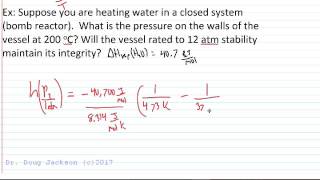 Ex: Suppose you are heating water in a closed system
(bomb reactor). What is the pressure on the walls of the
vessel at 200 °C? Will the vessel rated to 12 atm stability
maintain its integrity? ΔHvap(H2O) = 40.7 kJ/mol
ln(P2/1atm) = -40,700 J/mol / 8.314 J/mol K (1/473K - 1/37
Dr. Doug Jackson (c)2017